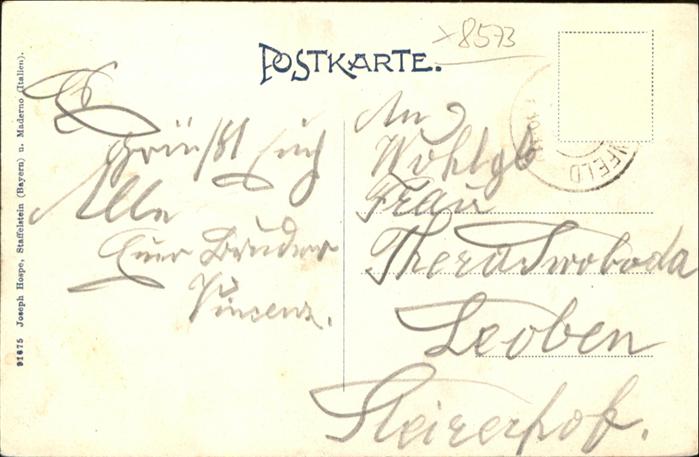 ×8573
POSTKARTE.
Es
Grüßt Euch
Alle
Euer Bruder
Vincenz.
An
Wohlgb
Frau
Thera Swoboda
Leoben
Steirerhof.
NFELD
91675 Joseph Hospe, Staffelstein (Bayern) u. Maderno (Italien).